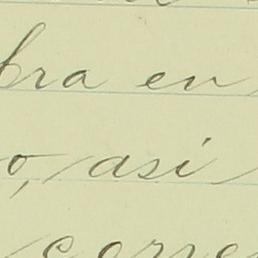 bra en
o, asi
corre